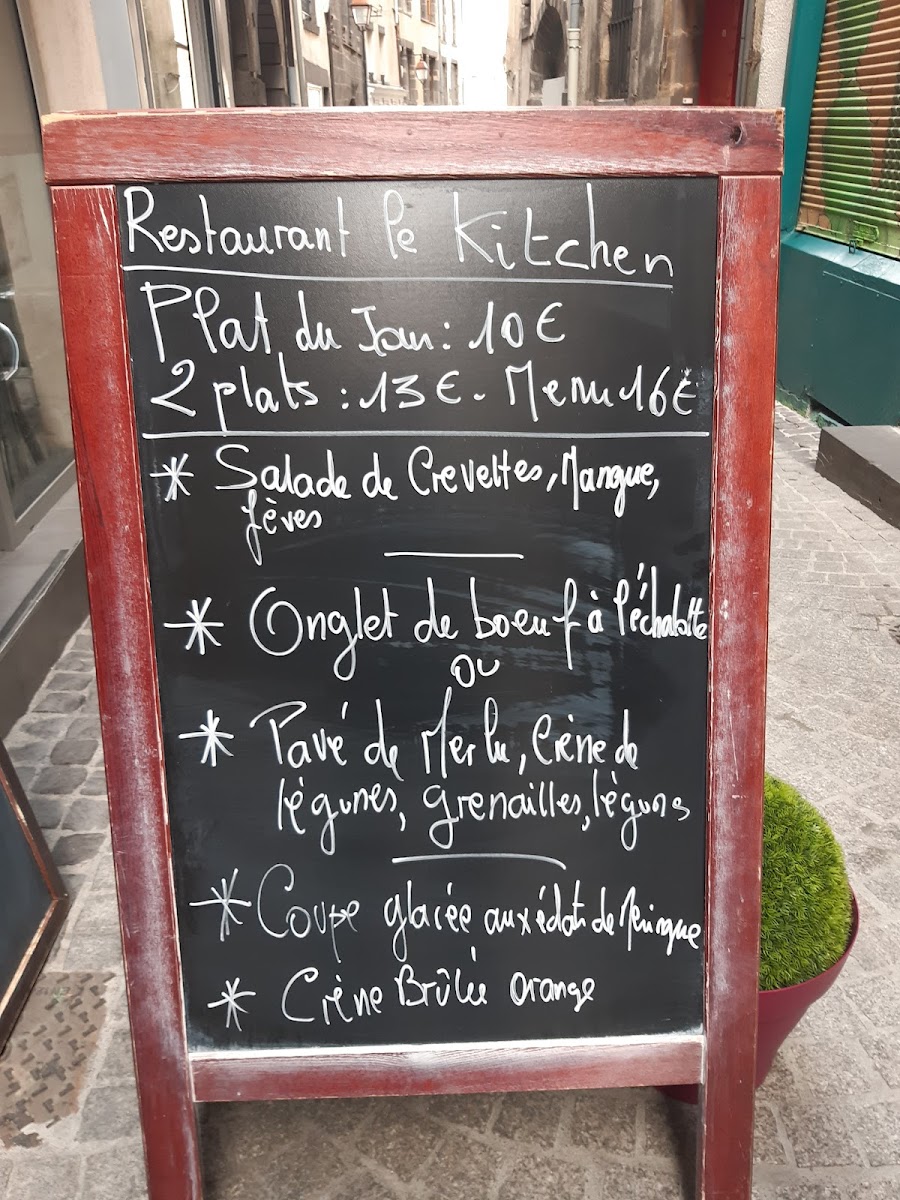 Restaurant le Kitchen
Plat du Jour : 10 €
2 plats : 13 € - Menu 16 €
* Salade de Crevettes, Mangue,
fèves
* Onglet de boeuf à l'échalotte
ou
* Pavé de Merlu, Crème de
légumes, grenailles, légumes
* Coupe glacée aux éclats de Meringue
* Crème Brûlée orange